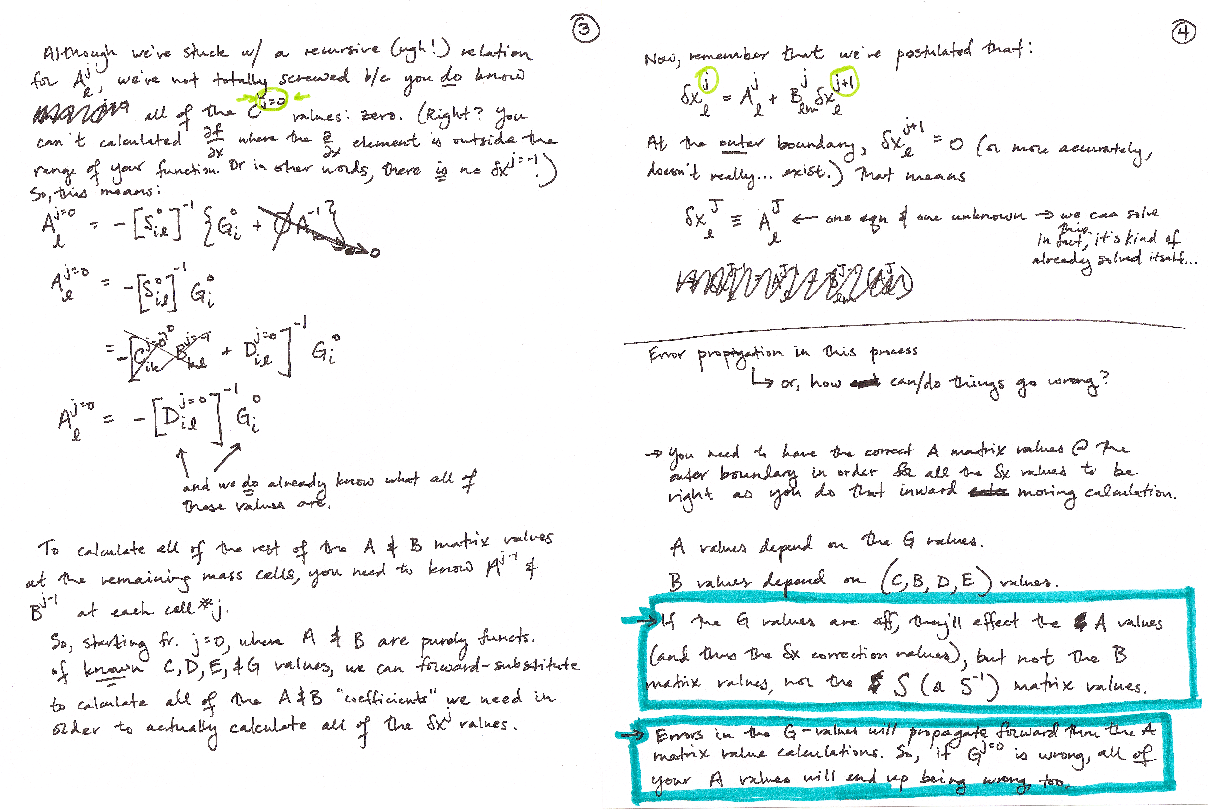 ③
Although we're stuck w/ a recursive (ugh!) relation
for A^j_l, we're not totally screwed b/c you do know
all of the C^{j=0} values: zero. (Right? You
can't calculated ∂f/∂x where the ∂/∂x element is outside the
range of your function. Or in other words, there is no δx^{j=-1}!)
So, this means:
A^{j=0}_l = -[S^0_{il}]^{-1} {G^0_i + ∅A^{-1}} 0
A^{j=0}_l = -[S^0_{il}]^{-1} G^0_i
= -[C^{j=0}_{ik} B^{j=-1}_{kl} + D^{j=0}_{il}]^{-1} G^0_i
A^{j=0}_l = -[D^{j=0}_{il}]^{-1} G^0_i
and we do already know what all of
those values are.
To calculate all of the rest of the A & B matrix values
at the remaining mass cells, you need to know A^{j-1} &
B^{j-1} at each cell #j.
So, starting fr. j=0, where A & B are purely functs.
of known C, D, E, & G values, we can forward-substitute
to calculate all of the A&B "coefficients" we need in
order to actually calculate all of the δx^j values.
④
Now, remember that we've postulated that:
δx^j_l = A^j_l + B^j_{lm} δx^{j+1}_l
At the outer boundary, δx^{j+1}_l = 0 (or more accurately,
doesn't really... exist.) That means
δx^J_l ≡ A^J_l ← one eqn & one unknown → we can solve
this
in fact, it's kind of
already solved itself...
Error propagation in this process
↳ or, how can/do things go wrong?
→ You need to have the correct A matrix values @ the
outer boundary in order for all the δx values to be
right as you do that inward moving calculation.
A values depend on the G values.
B values depend on (C, B, D, E) values.
→ If the G values are off, they'll effect the A values
(and thus the δx correction values), but not the B
matrix values, nor the S (a S^{-1}) matrix values.
→ Errors in the G-values will propagate forward thru the A
matrix value calculations. So, if G^{j=0} is wrong, all of
your A values will end up being wrong too.